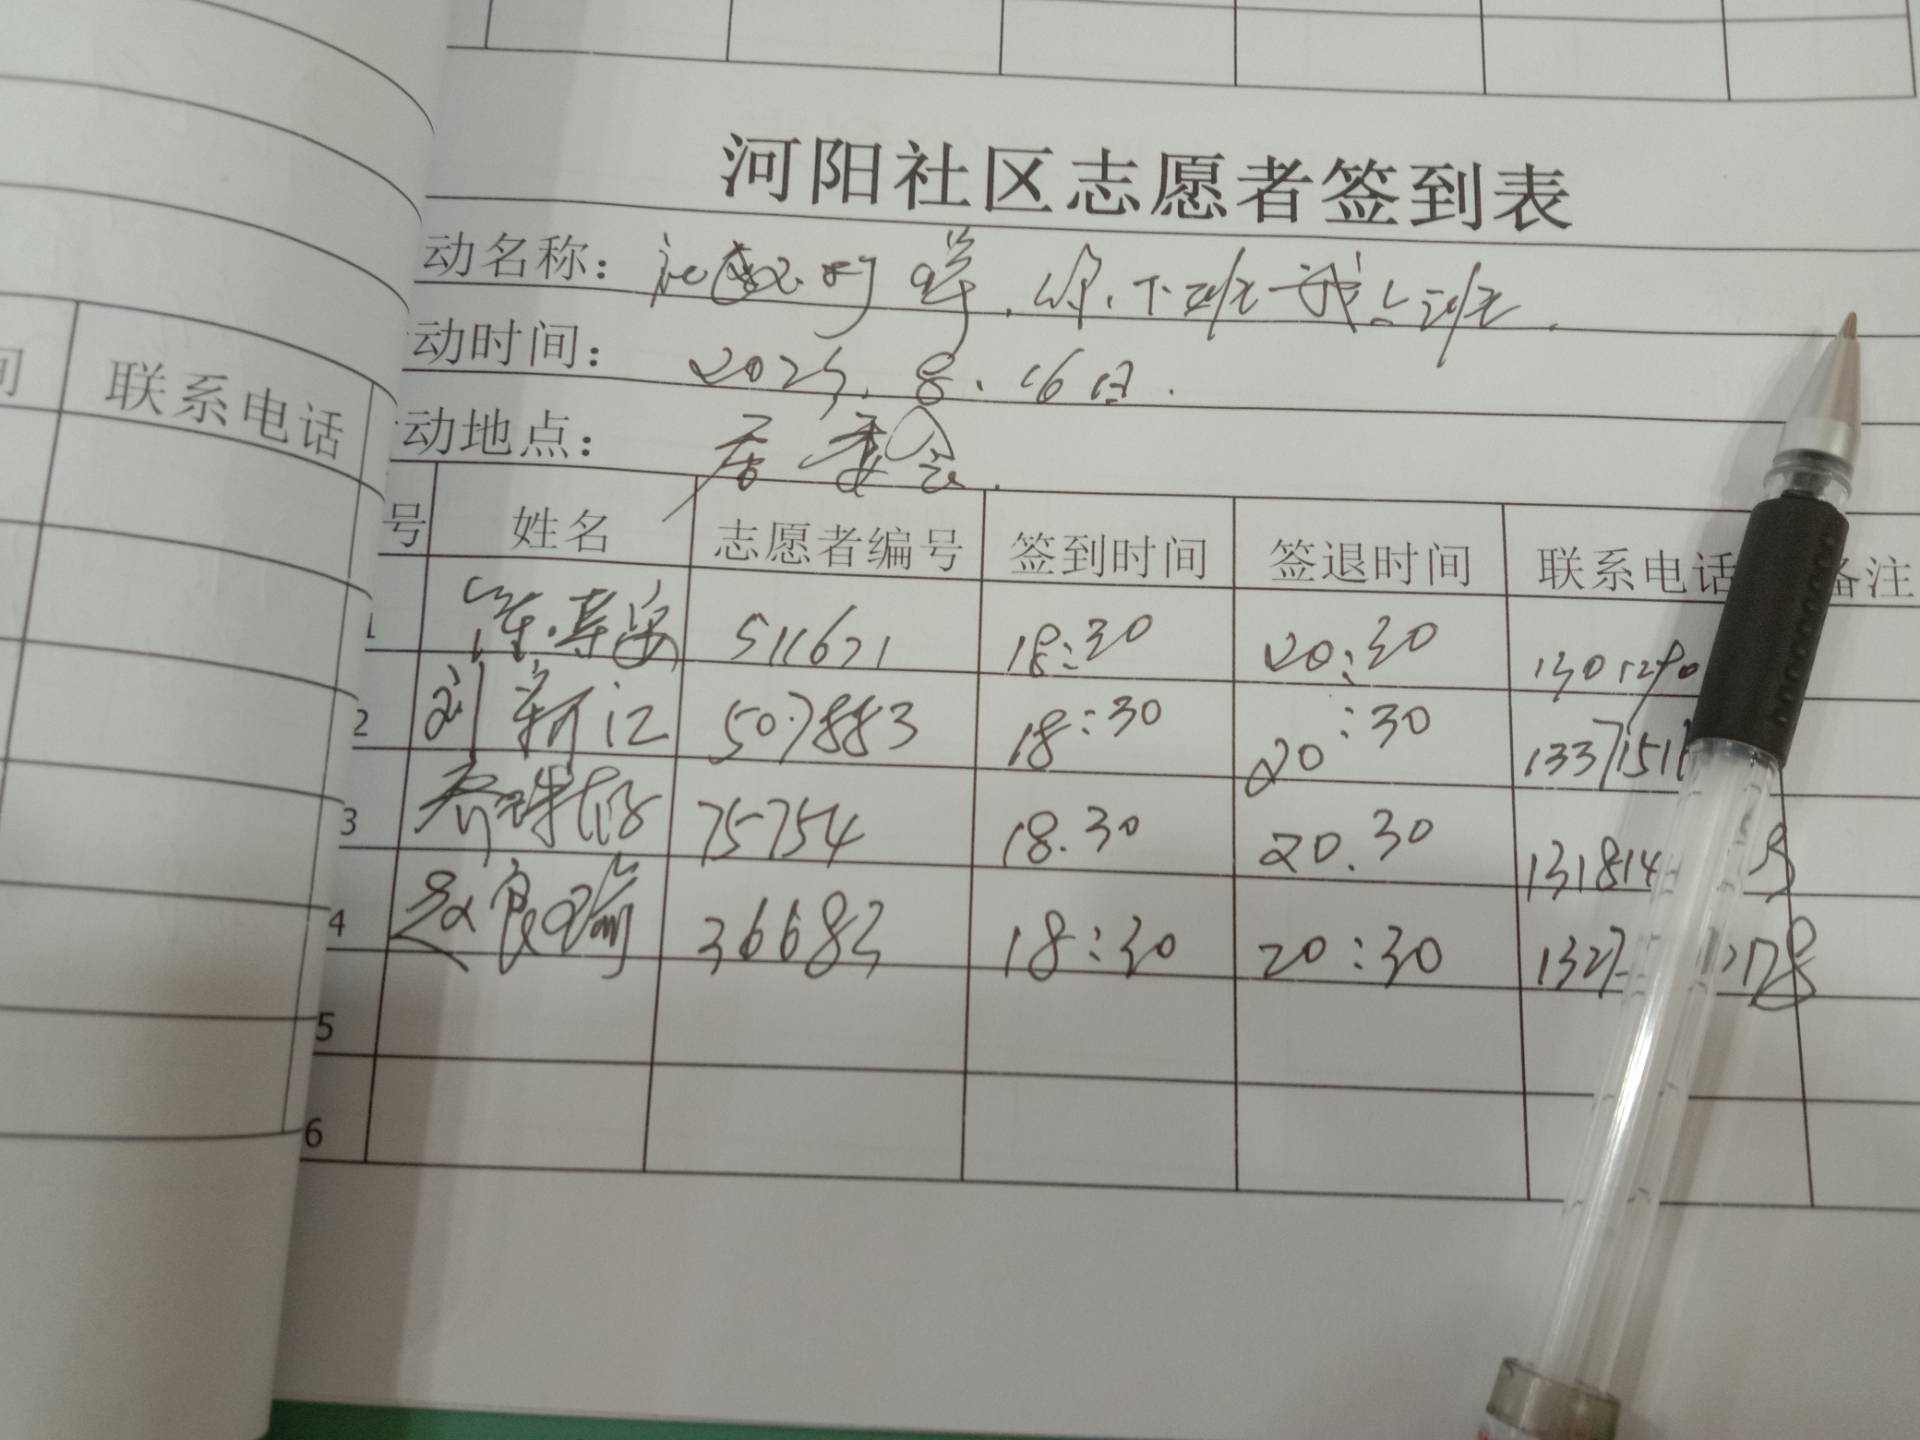 河阳社区志愿者签到表
动名称：你下班我上班.
动时间：2025.8.16日.
动地点：居委会.
间 联系电话
号 姓名 志愿者编号 签到时间 签退时间 联系电话 备注
1 511671 18:30 20:30
2 刘新江 507883 18:30 20:30 1337151
3 乔 75754 18.30 20.30 131814
4 赵良瑜 36683 18:30 20:30 1327 178
5
6